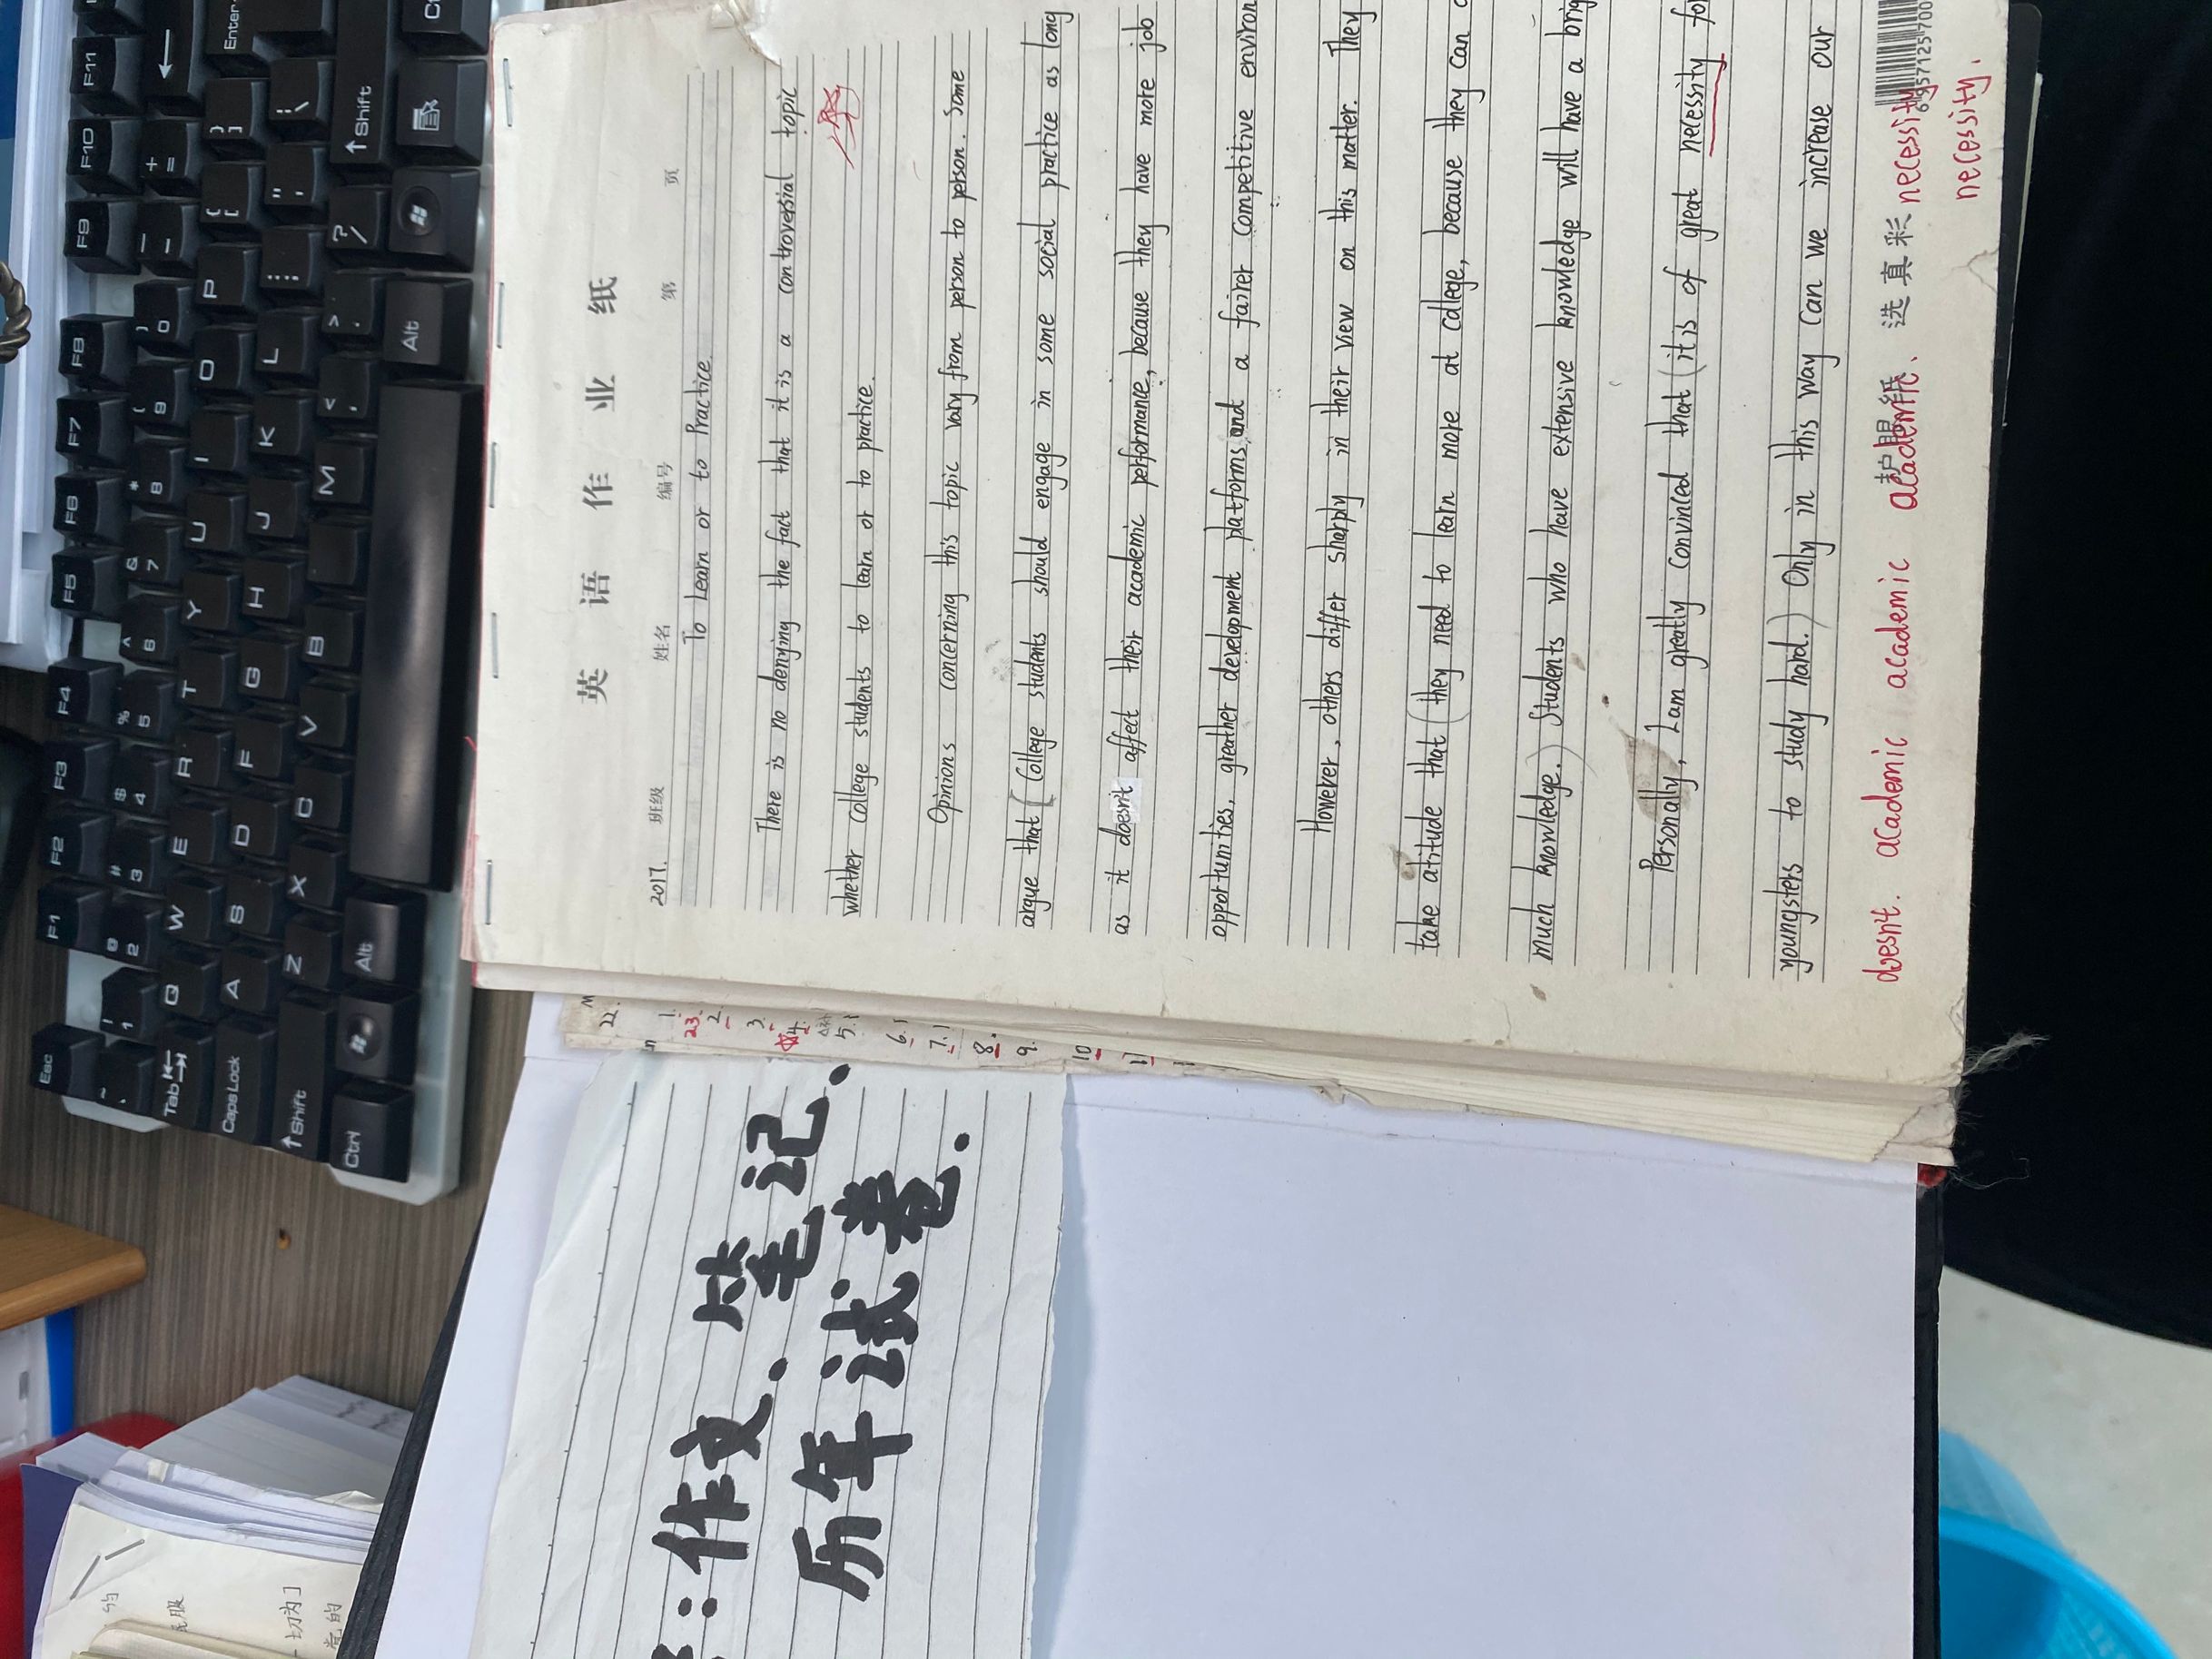 英语作业纸
2017. 班级 姓名 编号 第 页
To Learn or to Practice
There is no denying the fact that it is a controversial topic
whether college students to learn or to practice.
Opinions concerning this topic vary from person to person. Some
argue that (College students should engage in some social practice as long
as it doesn't affect their academic performance, because they have more job
opportunities, greather development platforms, and a fairer competitive environ
However, others differ sharply in their view on this matter. They
take atitude that (they need to learn more at college, because they can
much knowledge.) Students who have extensive knowledge will have a brig
Personally, I am greatly convinced that (it is of great necessity for
youngsters to study hard.) Only in this way can we increase our
护眼纸、选真彩
6957125700
doesn't. academic academic academic. necessity
necessity.
22.
1.
23.
2.
3.
4.
5.
6.
7.
8.
9.
10
11
:作文. 笔记.
历年试卷.
Esc F1 F2 F3 F4 F5 F6 F7 F8 F9 F10 F11
~ ` ! 1 @ 2 # 3 $ 4 % 5 ^ 6 & 7 * 8 ( 9 ) 0 _ - + = ←
Tab Q W E R T Y U I O P { [ } ] Enter
CapsLock A S D F G H J K L : ; " ' | \
↑Shift Z X C V B M < , > . ? / ↑Shift
Ctrl Alt Alt
的
民服
一切为
党的